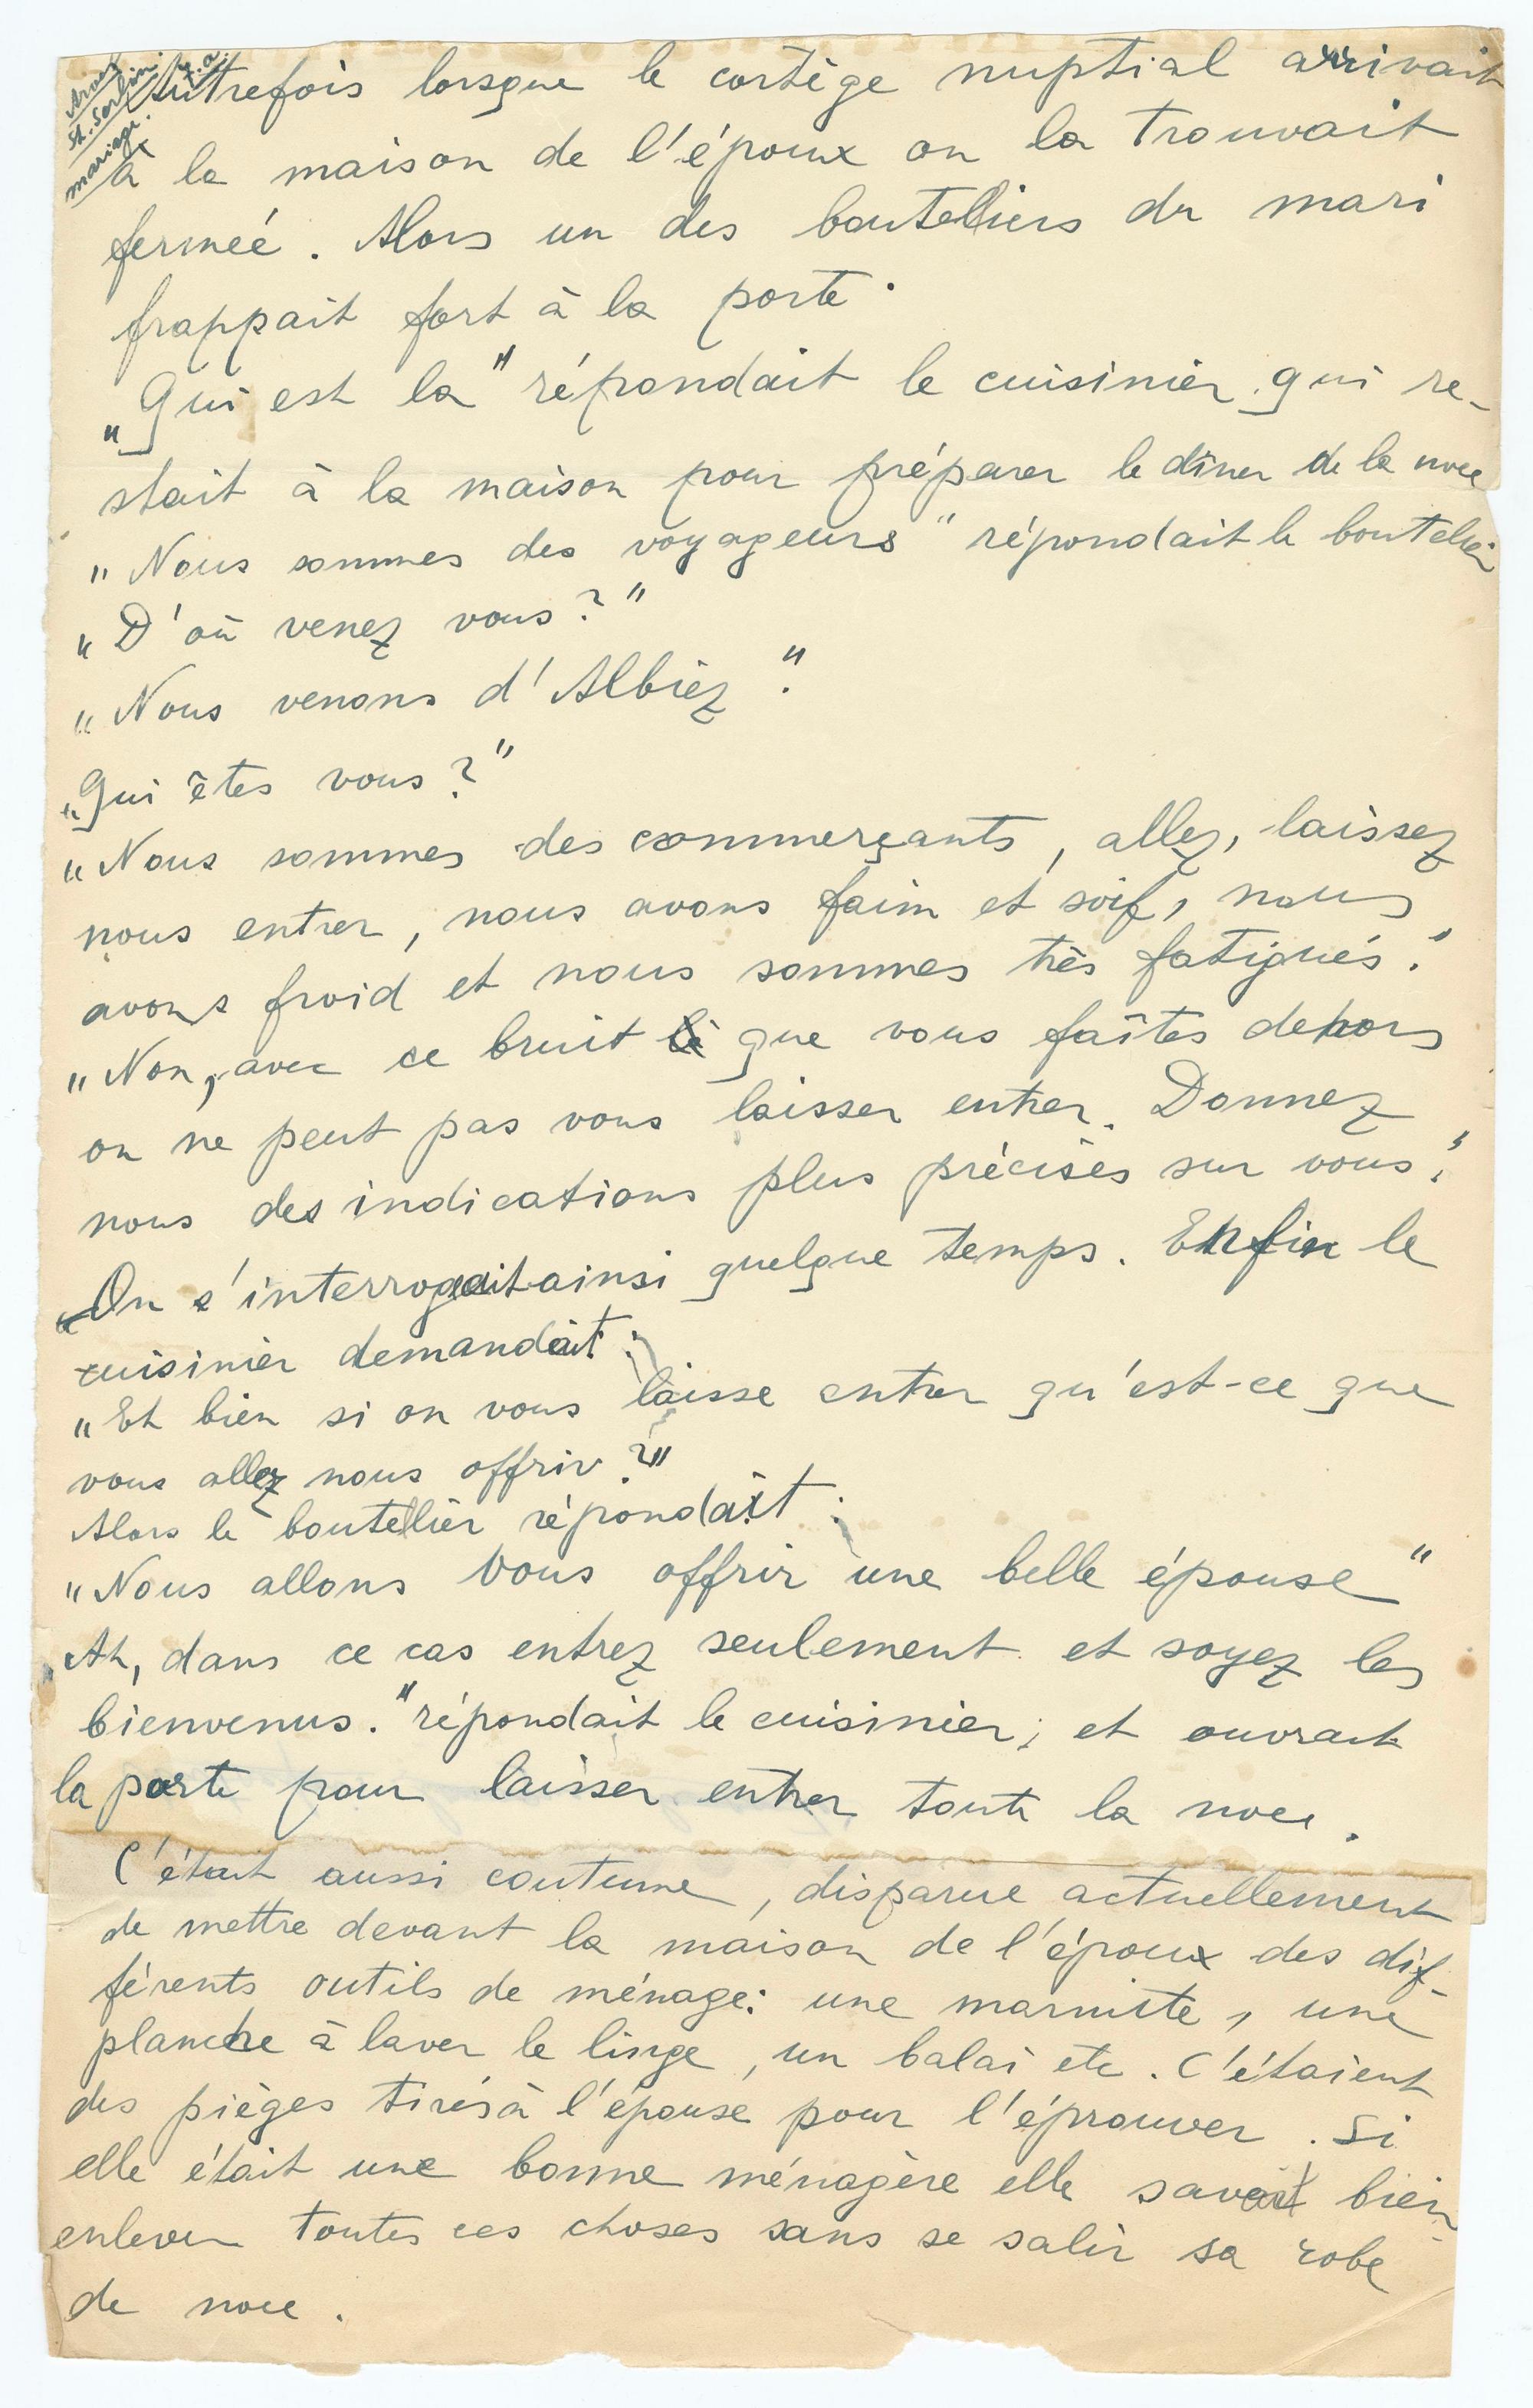 Arves
St. Sorlin
mariage.
Autrefois lorsque le cortège nuptial arrivait
à la maison de l'époux on la trouvait
fermeé. Alors un des boutelliers du mari
frappait fort à la porte.
„Qui est la" répondait le cuisinier qui re-
stait à la maison pour préparer le dîner de la noce
„Nous sommes des voyageurs" répondait le boutellier
„D'où venez vous?"
„Nous venons d'Albiez."
„Qui êtes vous?"
„Nous sommes des commerçants, allez, laissez
nous entrer, nous avons faim et soif, nous
avons froid et nous sommes très fatigués."
„Non, avec ce bruit que vous faîtes dehors
on ne peut pas vous laisser entrer. Donnez
nous des indications plus précises sur vous."
On s'interrogeait ainsi quelque temps. Enfin le
cuisinier demandait:
„Et bien si on vous laisse entrer qu'est-ce que
vous allez nous offrir?"
Alors le boutellier répondait:
„Nous allons vous offrir une belle épouse"
„Ah, dans ce cas entrez seulement et soyez les
bienvenus." répondait le cuisinier, et ouvrait
la porte pour laisser entrer toute la noce.
C'était aussi coutume, disparue actuellement
de mettre devant la maison de l'époux des dif-
férents outils de ménage: une marmite, une
planche à laver le linge, un balai etc. C'étaient
des pièges tirés à l'épouse pour l'éprouver. Si
elle était une bonne ménagère elle savait bien
enlever toutes ces choses sans se salir sa robe
de noce.